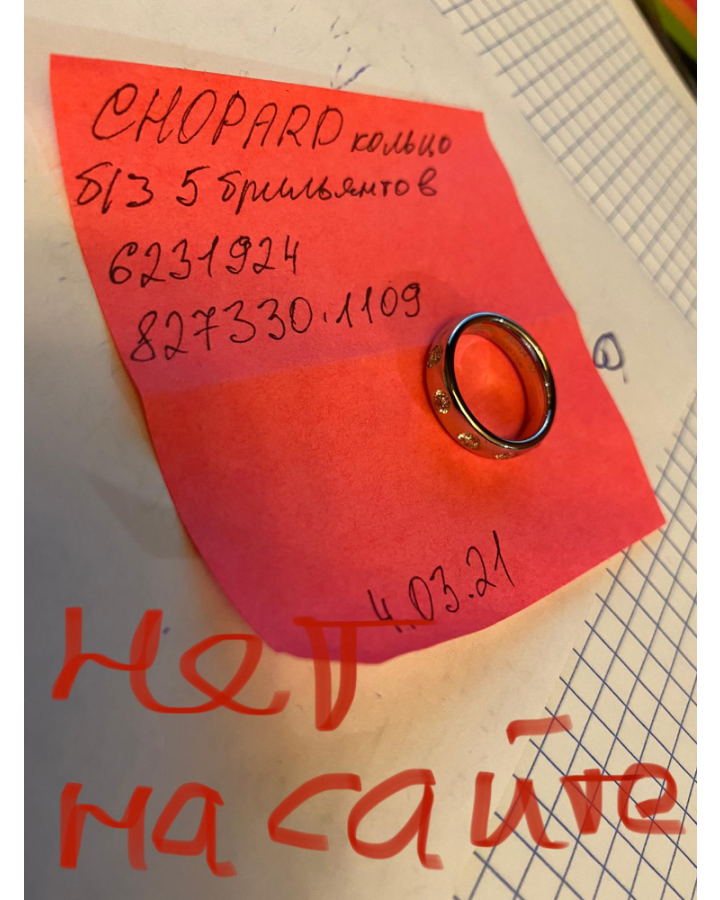 CHOPARD кольцо
б/з 5 брильянтов
6231924
827330.1109
4.03.21
нет
на сайте